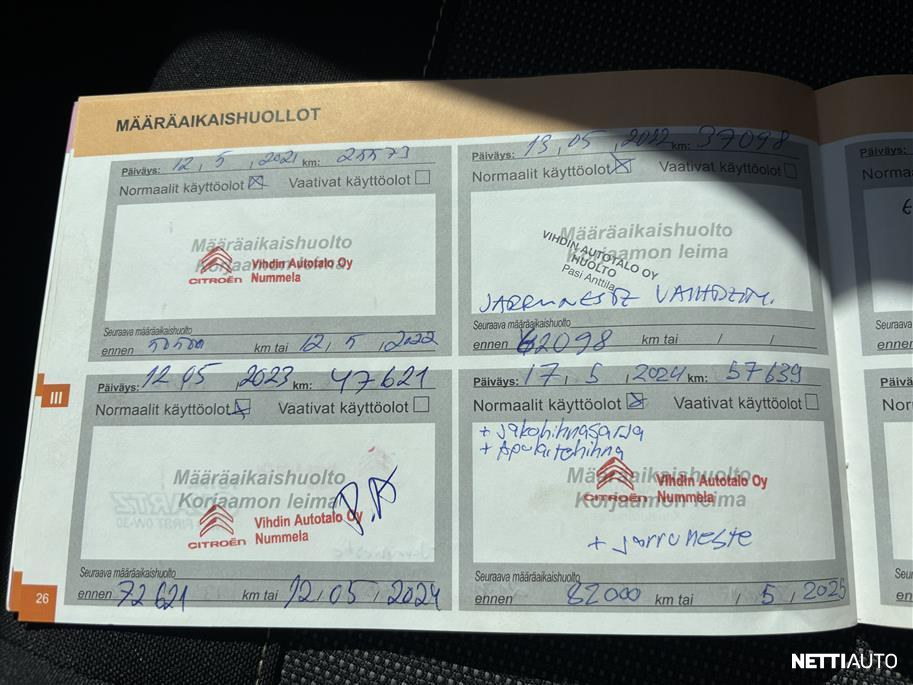 MÄÄRÄAIKAISHUOLLOT
Päiväys: 12, 5, 2021 km: 25573
Normaalit käyttöolot Vaativat käyttöolot
Määräaikaishuolto
Korjaamon leima
CITROËN
Vihdin Autotalo Oy
Nummela
Seuraava määräaikaishuolto
ennen 50500 km tai 12, 5, 2022
Päiväys: 13, 05, 2022 km: 37098
Normaalit käyttöolot Vaativat käyttöolot
Määräaikaishuolto
Korjaamon leima
VIHDIN AUTOTALO OY
HUOLTO
Pasi Anttila
JARRUNESTE VAIHDETTU.
Seuraava määräaikaishuolto
ennen 62098 km tai / /
Päiväys: 12 05, 2023 km: 47621
Normaalit käyttöolot Vaativat käyttöolot
Määräaikaishuolto
Korjaamon leima
CITROËN
Vihdin Autotalo Oy
Nummela
P.A
Seuraava määräaikaishuolto
ennen 72621 km tai 12, 05, 2024
Päiväys: 17, 5, 2024 km: 57639
Normaalit käyttöolot Vaativat käyttöolot
+ Jakohihnasarja
+ Apulaitehihna
Määräaikaishuolto
Korjaamon leima
CITROËN
Vihdin Autotalo Oy
Nummela
+ jarruneste
Seuraava määräaikaishuolto
ennen 82000 km tai / 5, 2025
III
26
NETTIAUTO